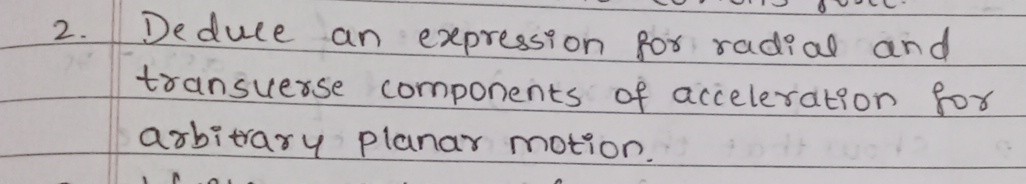 2. Deduce an expression for radial and
transverse components of acceleration for
arbitrary planar motion.